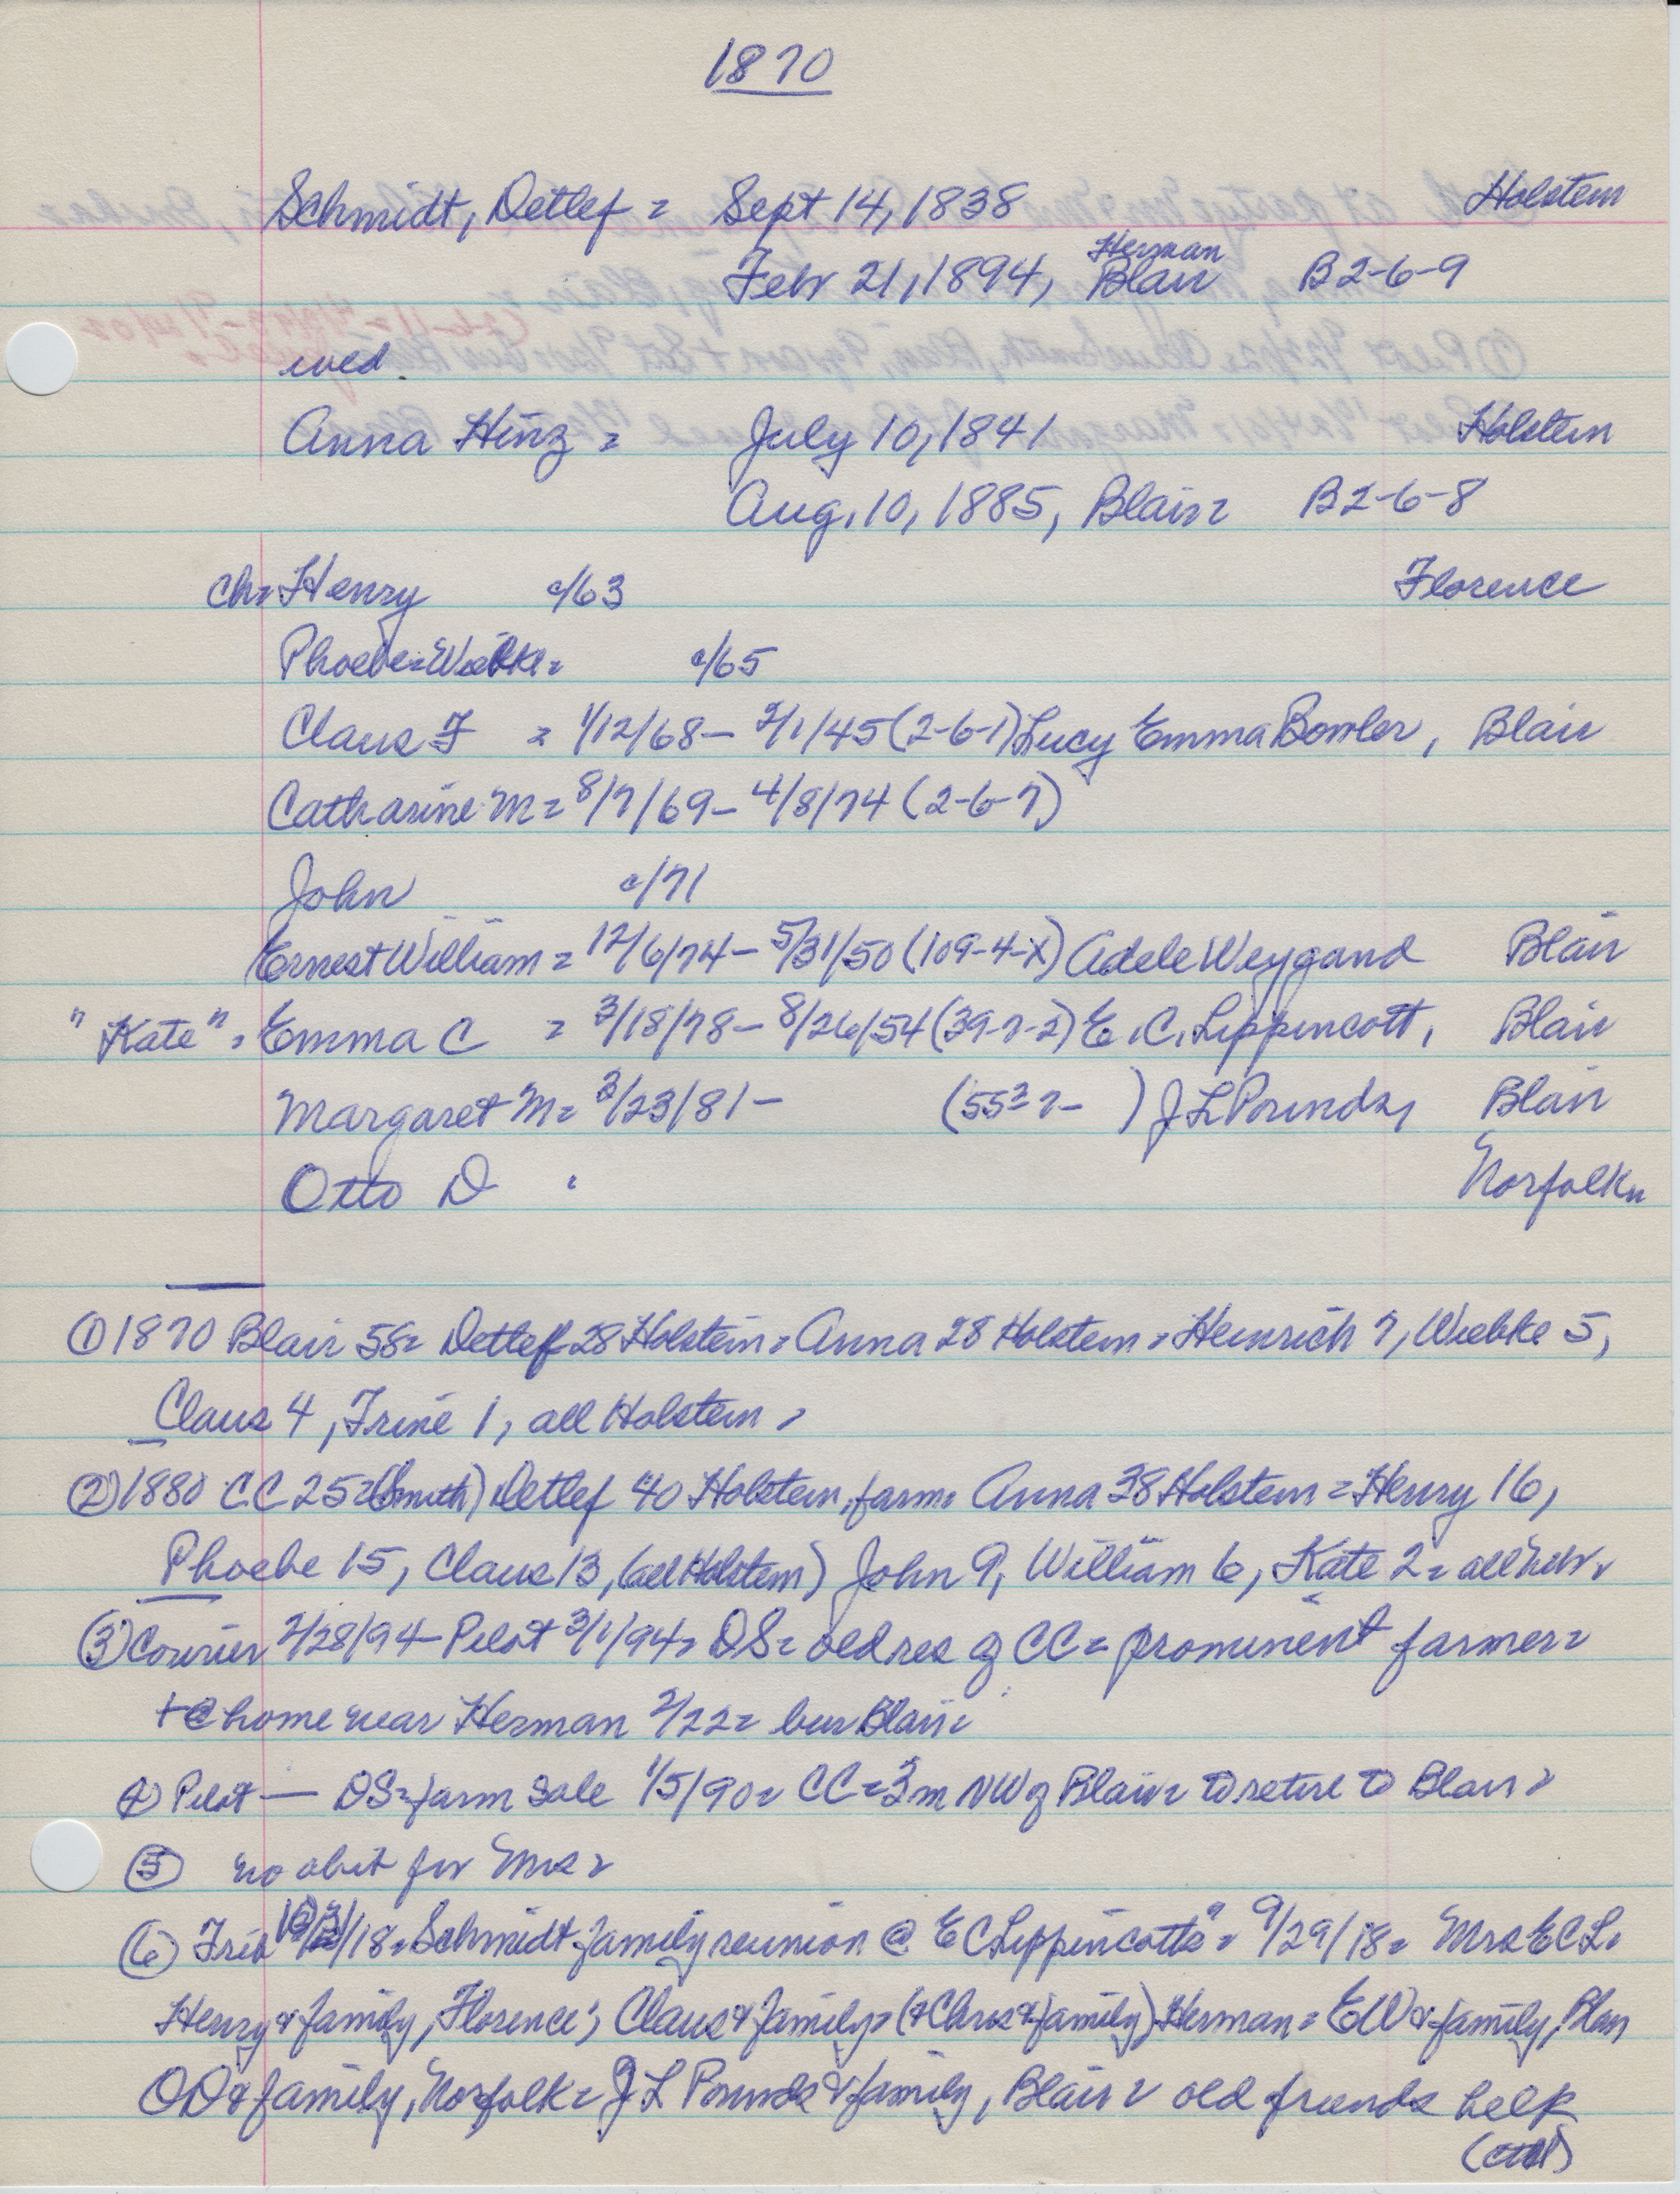 1870
Schmidt, Detlef = Sept 14, 1838 Holstein
Herman
Febr 21, 1894, Blair B2-6-9
wed
Anna Hinz = July 10, 1841 Holstein
Aug. 10, 1885, Blair = B2-6-8
Ch = Henry c/63 Florence
Phoebe = Wiebke = c/65
Claus F = 1/12/68 - 2/1/45 (2-6-1) Lucy Emma Bowler, Blair
Catharine M = 8/7/69 - 4/8/74 (2-6-7)
John c/71
Ernest William = 12/6/74 - 5/31/50 (109-4-X) Adele Weygand Blair
"Kate" = Emma C = 3/18/78 - 8/26/54 (39-7-2) E.C. Lippincott, Blair
Margaret M = 3/23/81 - (55 7- ) J L Pounds, Blair
Otto D = Norfolk
① 1870 Blair 58 = Detlef 28 Holstein = Anna 28 Holstein = Heinrich 7, Wiebke 5,
Claus 4, Trine 1, all Holstein =
② 1880 CC 25 = (Smith) Detlef 40 Holstein, farm = Anna 38 Holstein = Henry 16,
Phoebe 15, Claus 13, (all Holstein) John 9, William 6, Kate 2 = all Nebr =
③ Courier 2/28/94 - Pilot 3/1/94 = DS = old res of CC = prominent farmer =
+ @ home near Herman 2/22 = bur Blair =
④ Pilot — DS = farm sale 1/5/90 = CC = 3m NW of Blair = to retire to Blair =
⑤ no obit for Mrs =
⑥ Trib /18 = Schmidt family reunion @ E C Lippincotts" = 9/29/18 = Mrs ECL =
Henry & family, Florence; Claus & family = (& Chris & family) Herman = EW & family, Blair
OD & family, Norfolk = J L Pounds & family, Blair = old friends help